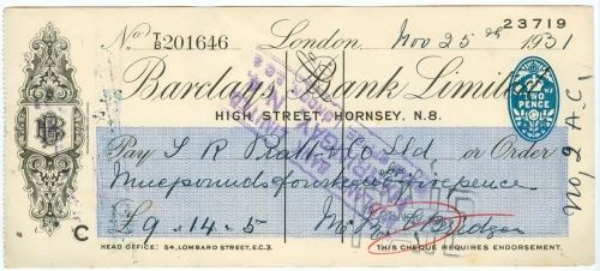 23719
No. T/B 201646 London, Nov 25th 1931
Barclays Bank Limited
HIGH STREET, HORNSEY, N.8.
TWO PENCE
Pay & Co Ltd, or Order
Nine pounds fourteen & five pence
£9-14-5
No. 2 A.C.
C
HEAD OFFICE: 54, LOMBARD STREET, E.C.3. THIS CHEQUE REQUIRES ENDORSEMENT.